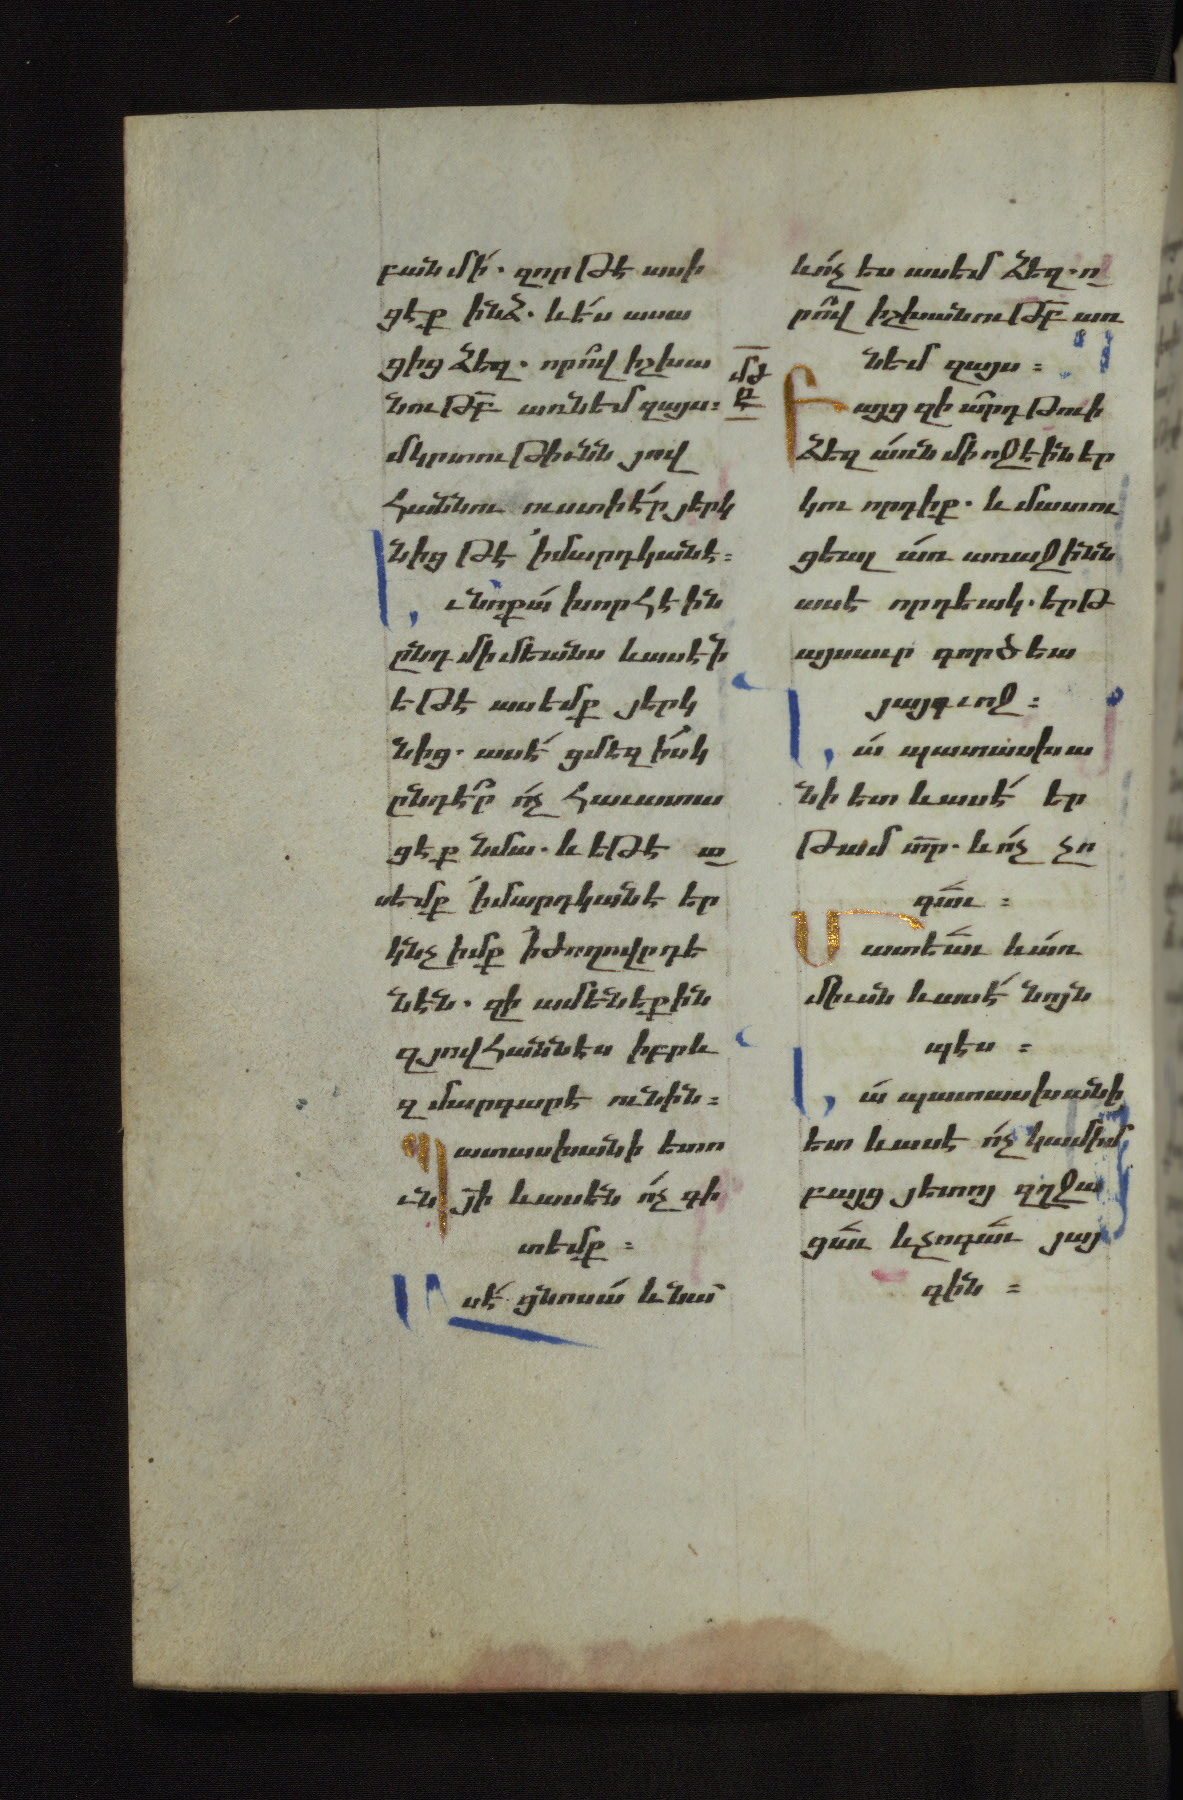 բան մի́. զոր թէ ասի
ցէք ինձ. և ե́ս ասա
ցից ձեզ. որո՞վ իշխա
նուԹ̅Բ առնեմ զայս։
մկրտութիւնն յով
հաննու ուստի է՞ր յերկ
նից թէ ՚ի մարդկանէ։
Ւ նոքա́ խորհէին
ընդ միմեանս և ասէի́ն
եթէ ասեմք յերկ
նից. ասէ́ ցմեզ ի́սկ
ընդէ՞ր ո́չ հաւատա
ցէք նմա. և եթէ ա
սեմք ՚ի մարդկանէ եր
կնչիմք ՚ի ժողովրդե
նէն. զի ամենեքին
զյովհաննէս իբրև
զմարգարէ ունին։
Պատասխանի ետո
ւն յ̅ի և ասեն ո́չ գի
տեմք։
Ասէ́ ցնոսա́ և նա
մժ
և ո́չ ես ասեմ ձեզ. ո
րո՞վ իշխանուԹ̅Բ առ
նեմ զայս։
Բայց զի ա՞րդ թուի
ձեզ առն միոջ էին եր
կու որդիք. և մատու
ցեալ ա́ռ առաջինն
ասէ որդեակ. երթ
այսաւր գործեա
յայգւոջ։
Նա́ պատասխա
նի ետ և ասէ́ եր
թամ տ̅ր. և ո́չ չո
գաւ։
Մատեաւ և ա́ռ
միւսն և ասէ́ նոյն
պէս։
Նա́ պատասխանի
ետ և ասէ ո́չ կամիմ
բայց յետոյ զղջա
ցաւ և չոգաւ յայ
գին։